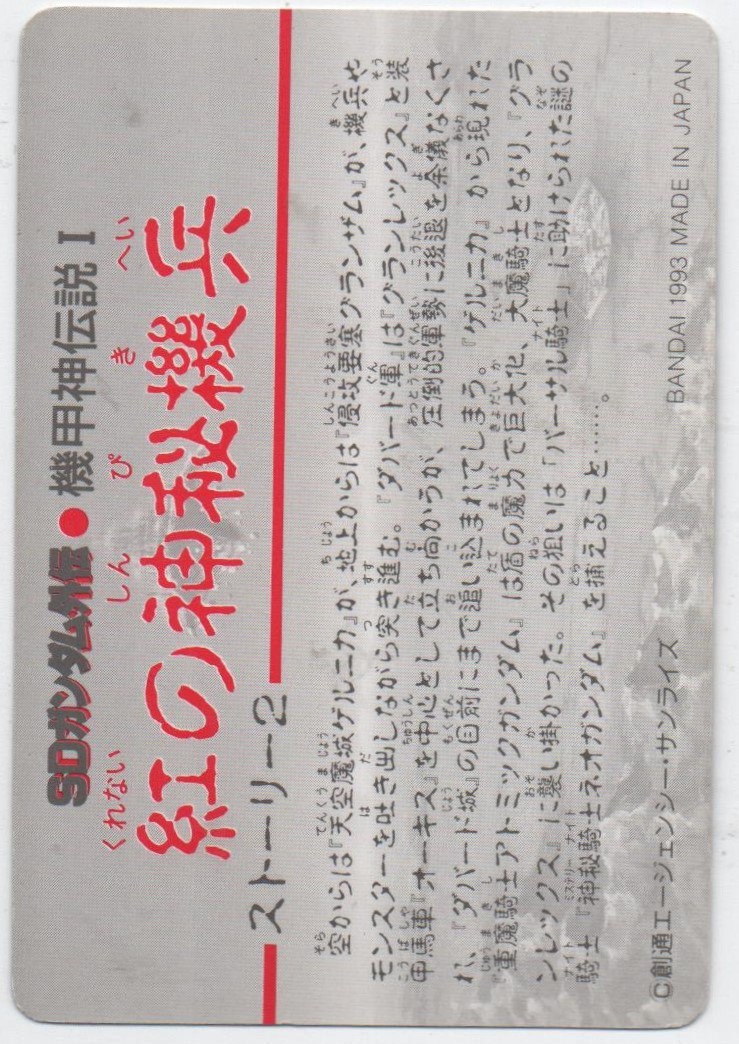 SDガンダム外伝●機甲神伝説Ⅰ
紅の神秘機兵
くれない しん ぴ き へい
ストーリー2
空からは『天空魔城ゲルニカ』が、地上からは『侵攻要塞グランザム』が、機兵や
モンスターを吐き出しながら突き進む。『ダバード軍』は『グランレックス』と装
甲馬車『オーキス』を中心として立ち向かうが、圧倒的軍勢に後退を余儀なくさ
れ、『ダバード城』の目前にまで追い込まれてしまう。『ゲルニカ』から現れた
『重魔騎士アトミックガンダム』は盾の魔力で巨大化、大魔騎士となり、『グラ
ンレックス』に襲い掛かった。その狙いは「バーサル騎士」に助けられた謎の
騎士『神秘騎士ネオガンダム』を捕えること……。
©創通エージェンシー・サンライズ
BANDAI 1993 MADE IN JAPAN